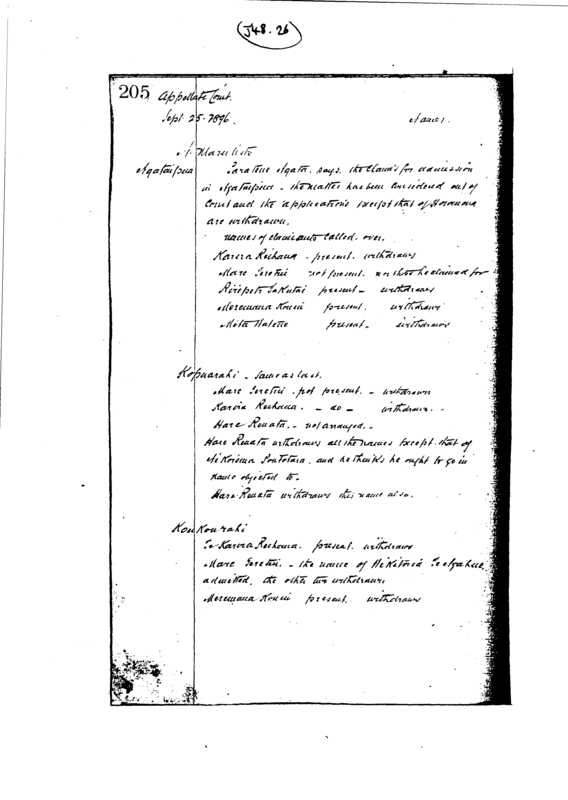 (J48.26)
205 Appellate Court.
Sept 25. 1896.
Names.
Ngataipua
Taratene Ngata. says. the Claims for admission
in Ngataipua - the matter has been considered out of
Court and the applications except that of
are withdrawn.
names of claimants called. over.
Karora Rechaua. present. withdraws
Mare Teretiu not present. nor those he claimed for
Riripeti Takutai present - withdraws
Meremana Konui present. withdraws
present. withdraws
Kopuarahi - same as last.
Mare Teretiu. not present. - withdrawn
Karora Rechaua. - do - withdrawn. -
Hare Renata. - not arranged. -
Hare Renata withdraws all the names except that of
and he thinks he ought to go in
name objected to.
Hare Renata withdraws this name also.
Koukourahi
Te Karora Rechaua. present. withdraws
Mare Teretiu. - the name of
admitted, the other two withdrawn.
Meremana Konui present. withdraws